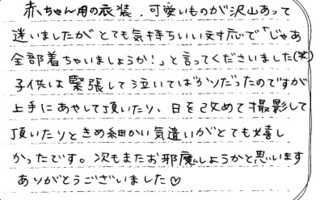 赤ちゃん用の衣装、可愛いものが沢山あって
迷いましたがとても気持ちいい対応で「じゃあ
全部着ちゃいましょうか!」と言ってくださいました(笑)
子供は緊張して泣いてばかりだったのですが
上手にあやして頂いたり、日を改めて撮影して
頂いたりときめ細かい気遣いがとても嬉し
かったです。次もまたお邪魔しようかと思います
ありがとうございました♡